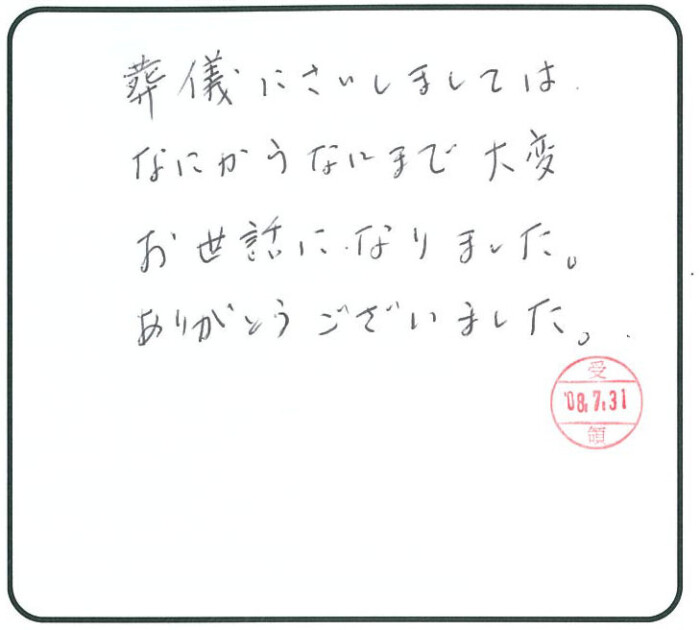 葬儀にさいしましては
なにからなにまで大変
お世話になりました。
ありがとうございました。
受
'08.7.31
領